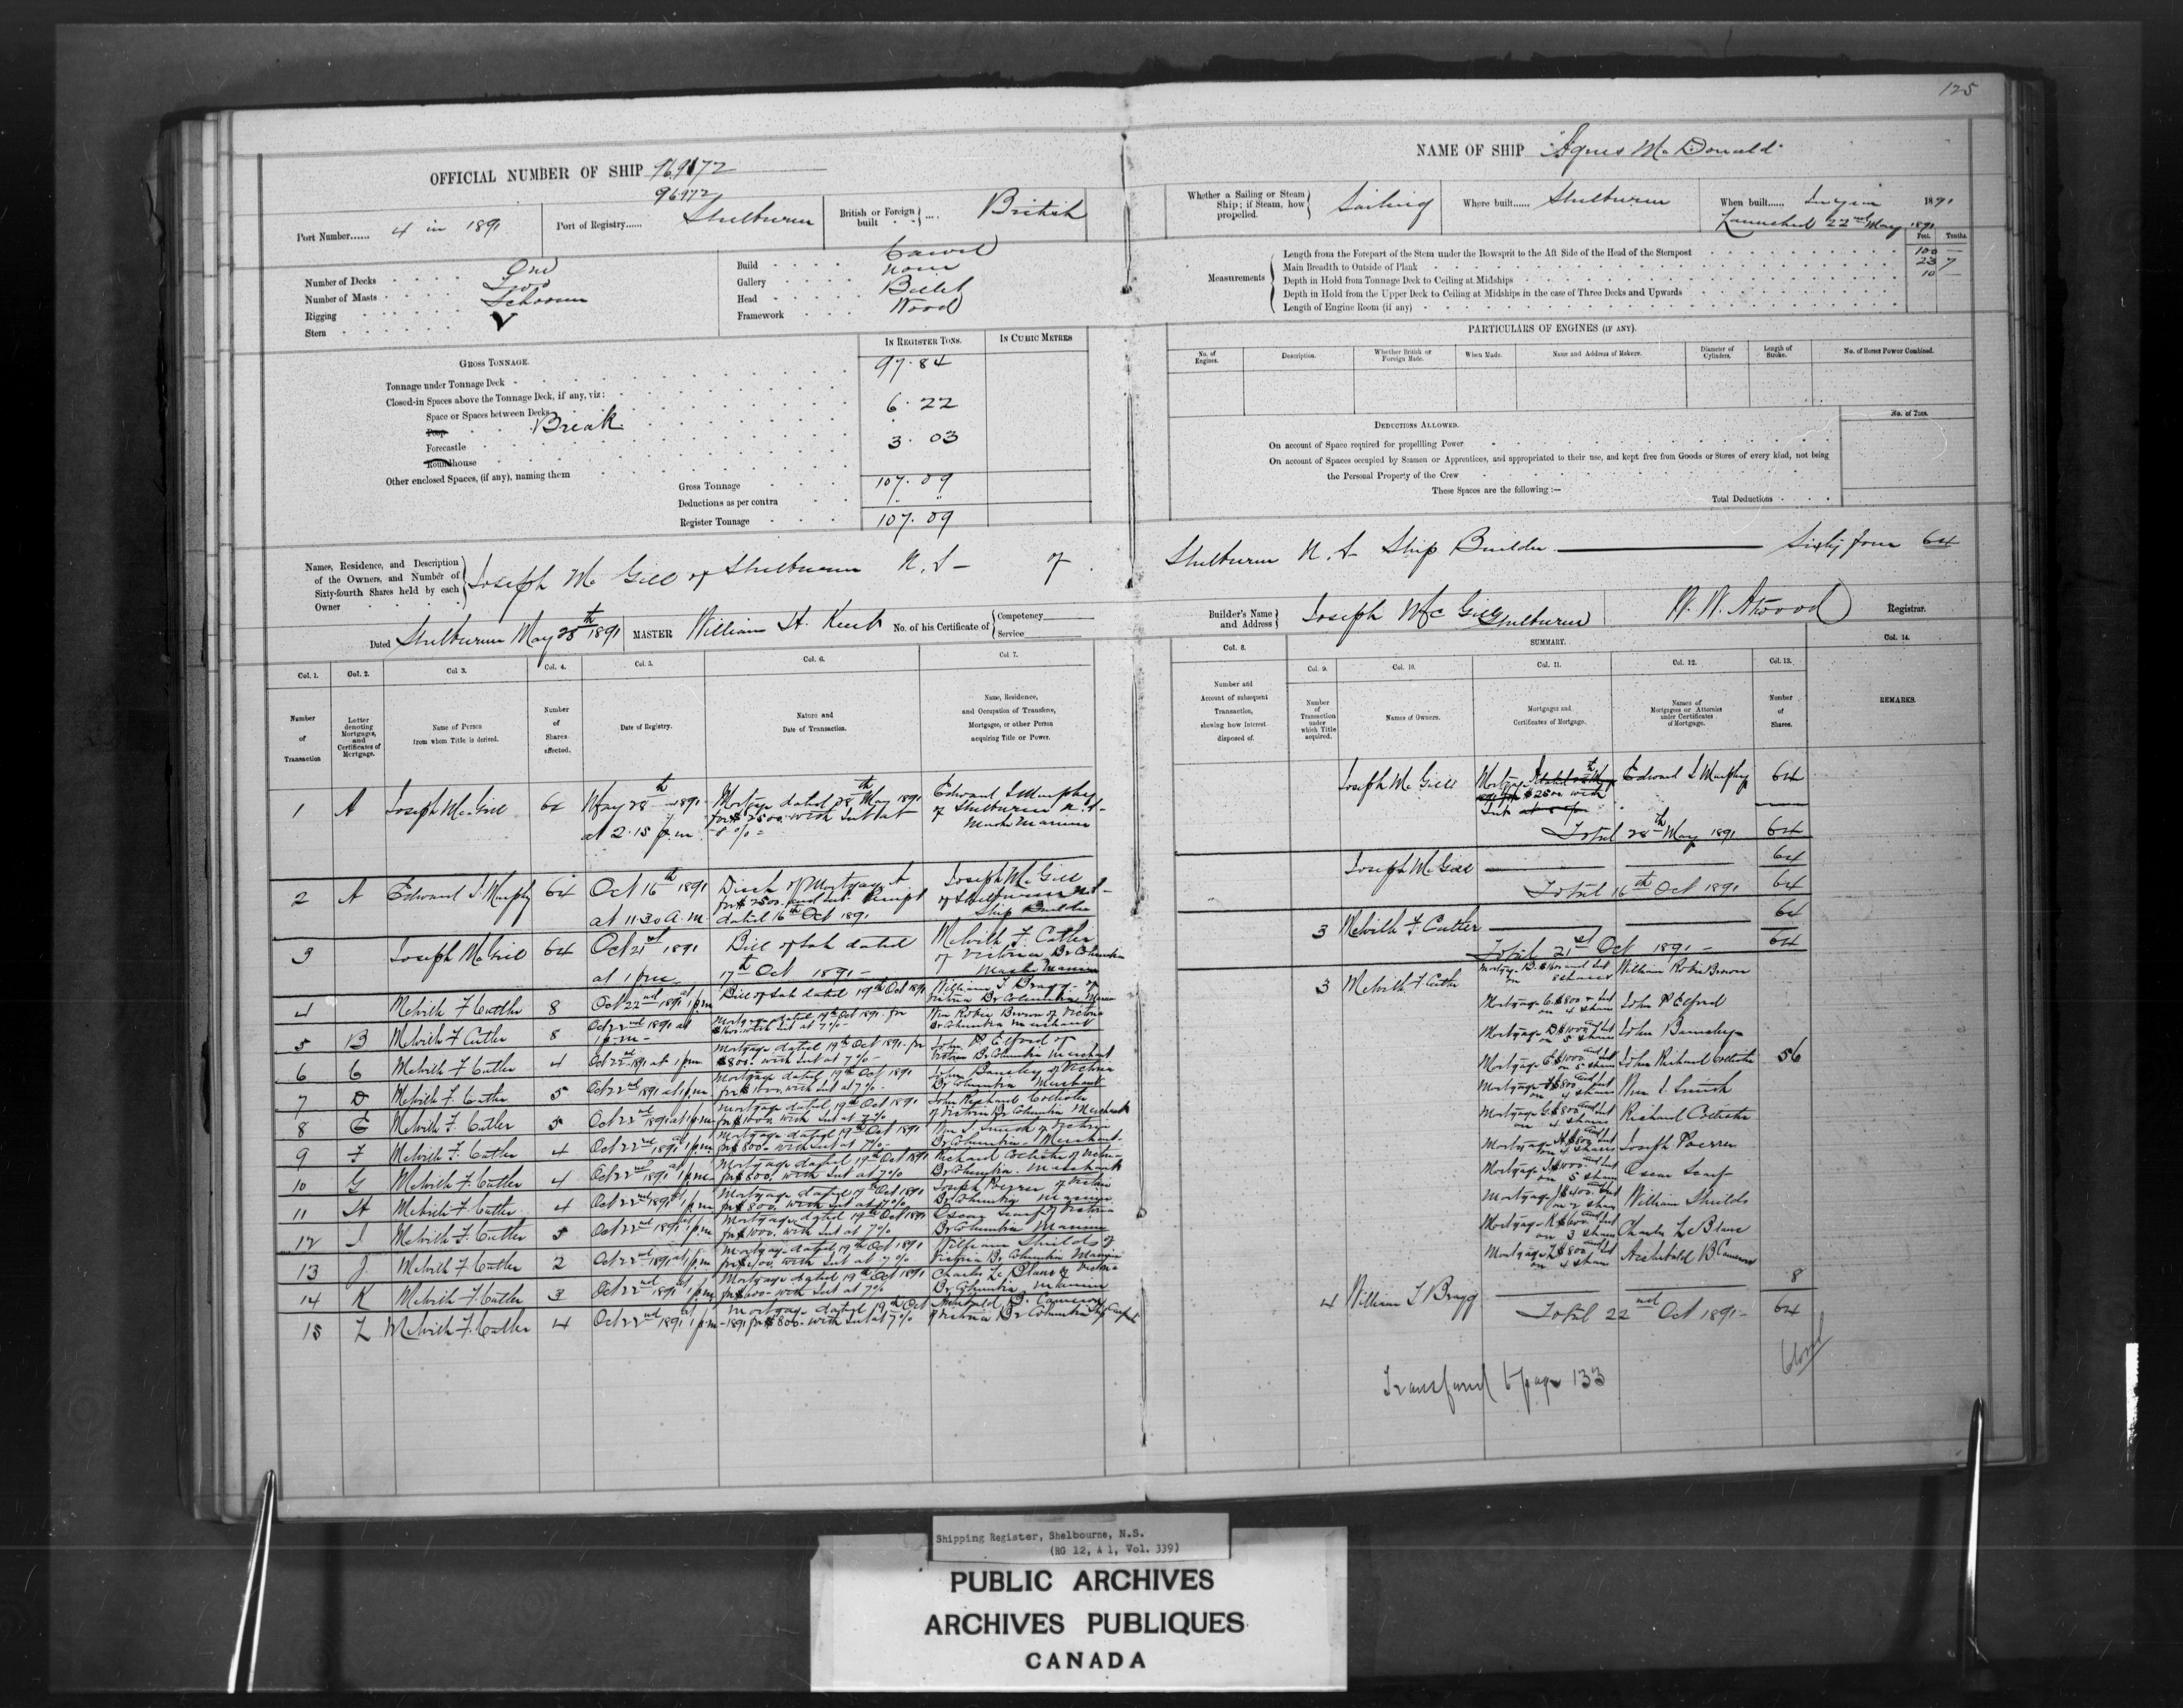 125
OFFICIAL NUMBER OF SHIP 969172
96972
NAME OF SHIP "Agnes McDonald"
Port Number...... 4 in 1891
Port of Registry...... Shelburne
British or Foreign built .... British
Whether a Sailing or Steam Ship; if Steam, how propelled. Sailing
Where built...... Shelburne
When built...... In year 1891
Launched 22nd May 1891
Number of Decks One
Number of Masts Two
Rigging Schooner
Stern
Build Carvel
Gallery None
Head Billet
Framework Wood
Feet. Tenths.
Measurements
Length from the Forepart of the Stem under the Bowsprit to the Aft Side of the Head of the Sternpost 100 —
Main Breadth to Outside of Plank 23 7
Depth in Hold from Tonnage Deck to Ceiling at Midships 10 —
Depth in Hold from the Upper Deck to Ceiling at Midships in the case of Three Decks and Upwards
Length of Engine Room (if any)
GROSS TONNAGE.
IN REGISTER TONS.
IN CUBIC METRES
Tonnage under Tonnage Deck 97.84
Closed-in Spaces above the Tonnage Deck, if any, viz:
Space or Spaces between Decks
Poop Break 6.22
Forecastle 3.03
Roundhouse
Other enclosed Spaces, (if any), naming them
Gross Tonnage 107.09
Deductions as per contra " "
Register Tonnage 107.09
PARTICULARS OF ENGINES (IF ANY).
No. of Engines.
Description.
Whether British or Foreign Made.
When Made.
Name and Address of Makers.
Diameter of Cylinders.
Length of Stroke.
No. of Horses Power Combined.
DEDUCTIONS ALLOWED.
No. of Tons.
On account of Space required for propelling Power
On account of Spaces occupied by Seamen or Apprentices, and appropriated to their use, and kept free from Goods or Stores of every kind, not being
the Personal Property of the Crew
These Spaces are the following:—
Total Deductions
Names, Residence, and Description of the Owners, and Number of Sixty-fourth Shares held by each Owner
Joseph McGill of Shelburne N.S- of Shelburne N.S Ship Builder — Sixty four 64
Dated Shelburne May 28th 1891
MASTER William H. Kent No. of his Certificate of Competency Service
Builder's Name and Address Joseph McGill Shelburne
W. W. Atwood Registrar.
Col. 1. Number of Transaction
Col. 2. Letter denoting Mortgages, and Certificates of Mortgage.
Col 3. Name of Person from whom Title is derived.
Col. 4. Number of Shares affected.
Col. 5. Date of Registry.
Col. 6. Nature and Date of Transaction.
Col 7. Name, Residence, and Occupation of Transferee, Mortgagee, or other Person acquiring Title or Power.
Col. 8. Number and Account of subsequent Transaction, showing how interest disposed of.
SUMMARY.
Col. 9. Number of Transaction under which Title acquired.
Col. 10. Names of Owners.
Col. 11. Mortgages and Certificates of Mortgage.
Col. 12. Names of Mortgagees or Attornies under Certificates of Mortgage.
Col. 13. Number of Shares.
Col. 14. REMARKS.
1 A Joseph McGill 64 May 28th 1891 at 2.15 p.m Mortgage dated 28th May 1891 for $2500. with Int at 8% Edward I Murphy of Shelburne N.S- Master Mariner
2 A Edward I. Murphy 64 Oct 16th 1891 at 11.30 a.m. Disch of Mortgage A for $2500. and Int. Receipt dated 16th Oct 1891 Joseph McGill of Shelburne N.S- Ship Builder
3 Joseph McGill 64 Oct 21st 1891 at 1 p.m Bill of Sale dated 17th Oct 1891- Melvith F Cutler of Victoria Br Columbia Master Mariner
4 Melvith F Cutler 8 Oct 22nd 1891 at 1 p.m Bill of Sale dated 19th Oct 1891 William T Bragg of Victoria Br Columbia Mariner
5 B Melvith F Cutler 8 Oct 22nd 1891 at 1 p.m- Mortgage dated 19th Oct 1891 for $1600. with Int at 7% Wm Robie Brown of Victoria Br Columbia Merchant
6 C Melvith F. Cutler 4 Oct 22nd 1891 at 1 pm Mortgage dated 19th Oct 1891 for $800. with Int at 7%- John P Elford of Victoria Br Columbia Merchant
7 D Melvith F. Cutler 5 Oct 22nd 1891 at 1 p.m. Mortgage dated 19th Oct 1891 for $1000, with Int at 7%. John Barnsley of Victoria Br Columbia Merchant
8 E Melvith F. Cutler 5 Oct 22nd 1891 at 1 pm Mortgage dated 19th Oct 1891 for $1000 with Int at 7% John Richard Collister of Victoria Br Columbia Merchant
9 F Melvith F. Cutler 4 Oct 22nd 1891 at 1 p.m. Mortgage dated 19th Oct 1891 for $800. with Int at 7%- Wm I. Smith of Victoria Br Columbia- Merchant.
10 G Melvith F. Cutler 4 Oct 22nd 1891 at 1 p.m- Mortgage dated 19th Oct 1891 for $800. with Int at 7% Richard Collister of Victoria Br Columbia. Merchant
11 H Melvith F. Cutler 4 Oct 22nd 1891 at 1 p.m Mortgage dated 19th Oct 1891 for $800. with Int at 7% Joseph of Victoria Br Columbia Mariner
12 I Melvith F. Cutler 5 Oct 22nd 1891 at 1 p.m. Mortgage dated 19th Oct 1891 for $1000. with Int at 7% Oscar Scarf of Victoria Br Columbia Mariner
13 J Melvith F. Cutler 2 Oct 22nd 1891 at 1 p.m Mortgage dated 19th Oct 1891 for $400. with Int at 7%. William Shields of Victoria Br Columbia Mariner
14 K Melvith F. Cutler 3 Oct 22nd 1891 at 1 pm Mortgage dated 19th Oct 1891 for $600- with Int at 7% Charles Le Blanc of Victoria Br Columbia Mariner
15 L Melvith F. Cutler 4 Oct 22nd 1891 at 1 p.m Mortgage dated 19th Oct -1891 for $800- with Int at 7% Archibald B. Cameron of Victoria Br Columbia Ship Carpt
Joseph McGill Mortgage $2500 with Int Edward I Murphy 64
Total 28th May 1891 64
Joseph McGill — — 64
Total 16th Oct 1891 64
3 Melvith F Cutler — — 64
Total 21st Oct 1891- 64
3 Melvith F Cutler 56
Mortgage B. $1600 and Int on 8 shares William Robie Brown
Mortgage C. $800 & Int on 4 shares John P Elford
Mortgage D $1000 and Int on 5 shares John Barnsley-
Mortgage E $1000 and Int on 5 shares John Richard Collister
Mortgage F $800 and Int on 4 shares Wm I Smith
Mortgage G. $800 and Int on 4 shares Richard Collister
Mortgage H. $800 and Int on 4 shares Joseph
Mortgage I $1000. and Int on 5 shares Oscar Scarf-
Mortgage J $400. and Int on 2 shares William Shields
Mortgage K $600 and Int on 3 shares Charles Le Blanc
Mortgage L $800 and Int on 4 shares Archibald B Cameron
4 William T Bragg — — 8
Total 22nd Oct 1891- 64
Transferred to page 133
Closed
Shipping Register, Shelbourne, N.S.
(RG 12, A 1, Vol. 339)
PUBLIC ARCHIVES
ARCHIVES PUBLIQUES
CANADA